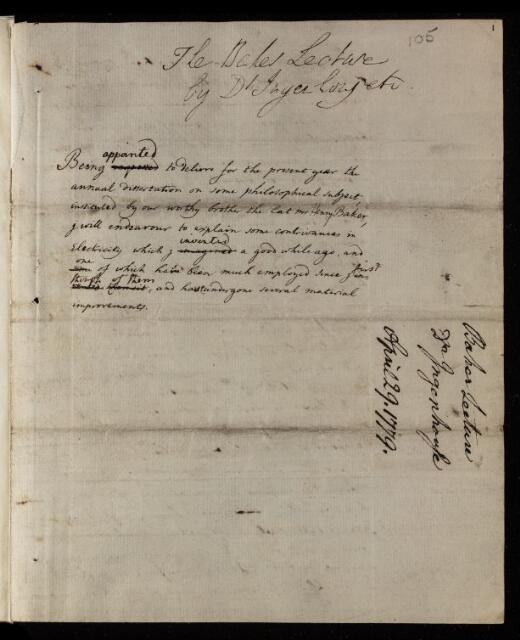 105
1
The Baker Lecture
by Dr Ingen Housz etc.
appointed
Being required to deliver for the present year the
annual dissertation on some philosophical subject,
instituted by our worthy brother the late Mr Henry Baker,
j will endeavour to explain some contrivances in
invented
Electricity which j imagined a good while ago, and
one first
of which has been much employed since j
thougth of them
, and has undergone several material
improvements.
Baker Lecture
Dr Ingenhousz
April 29. 1779.